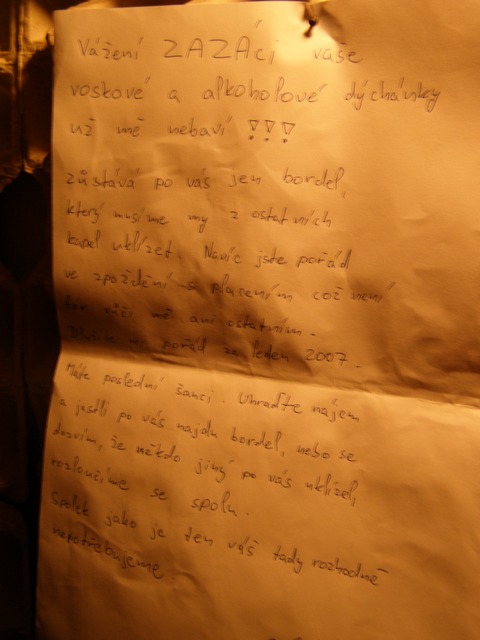 Vážení ZAZÁci vaše
voskové a alkoholové dýchánky
už mě nebaví !!!
zůstává po vás jen bordel,
který musíme my z ostatních
kapel uklízet. Navíc jste pořád
ve zpoždění s placením což není
fér vůči mě ani ostatním.
pořád za leden 2007.
Máte poslední šanci. Uhraďte nájem
a jestli po vás najdu bordel, nebo se
dozvím, že někdo jiný po vás uklízel,
rozloučíme se spolu.
Spolek jako je ten váš tady rozhodně
nepotřebujeme.